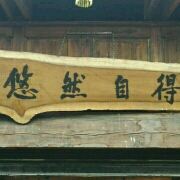 悠然自得